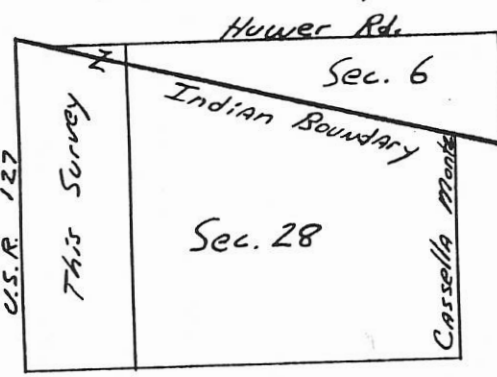 Huwer Rd.
Sec. 6
Indian Boundary
U.S.R. 127
This Survey
Sec. 28
Cassella Monte